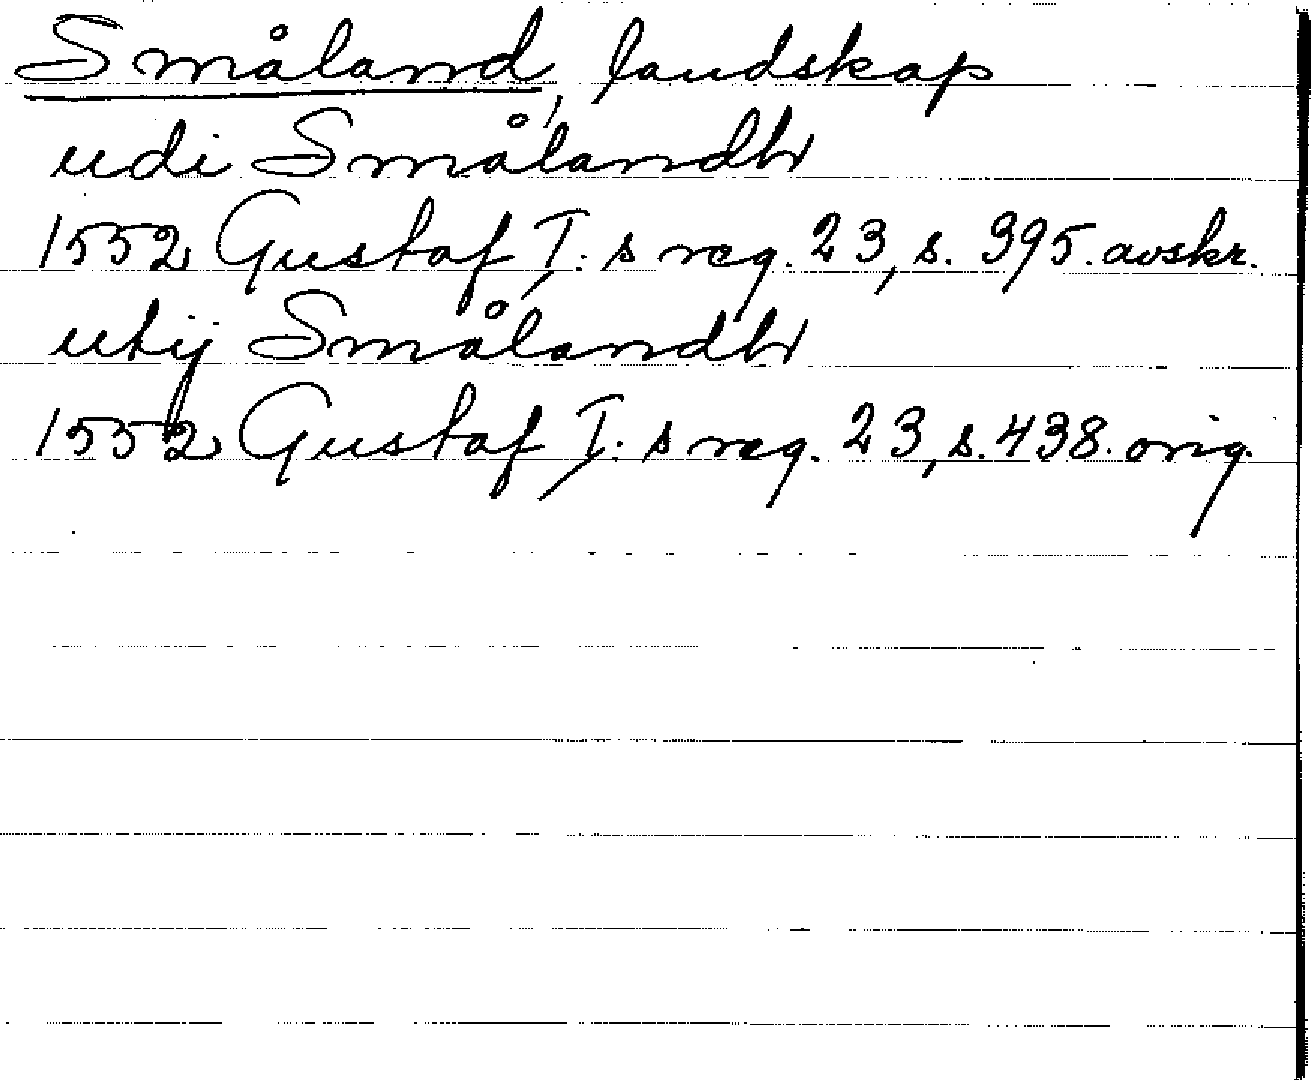 Småland, landskap
udi Smålandh
1552 Gustaf I: s reg. 23, s. 395. avskr.
utij Smålandh
1552 Gustaf I: s reg. 23, s. 438. orig.